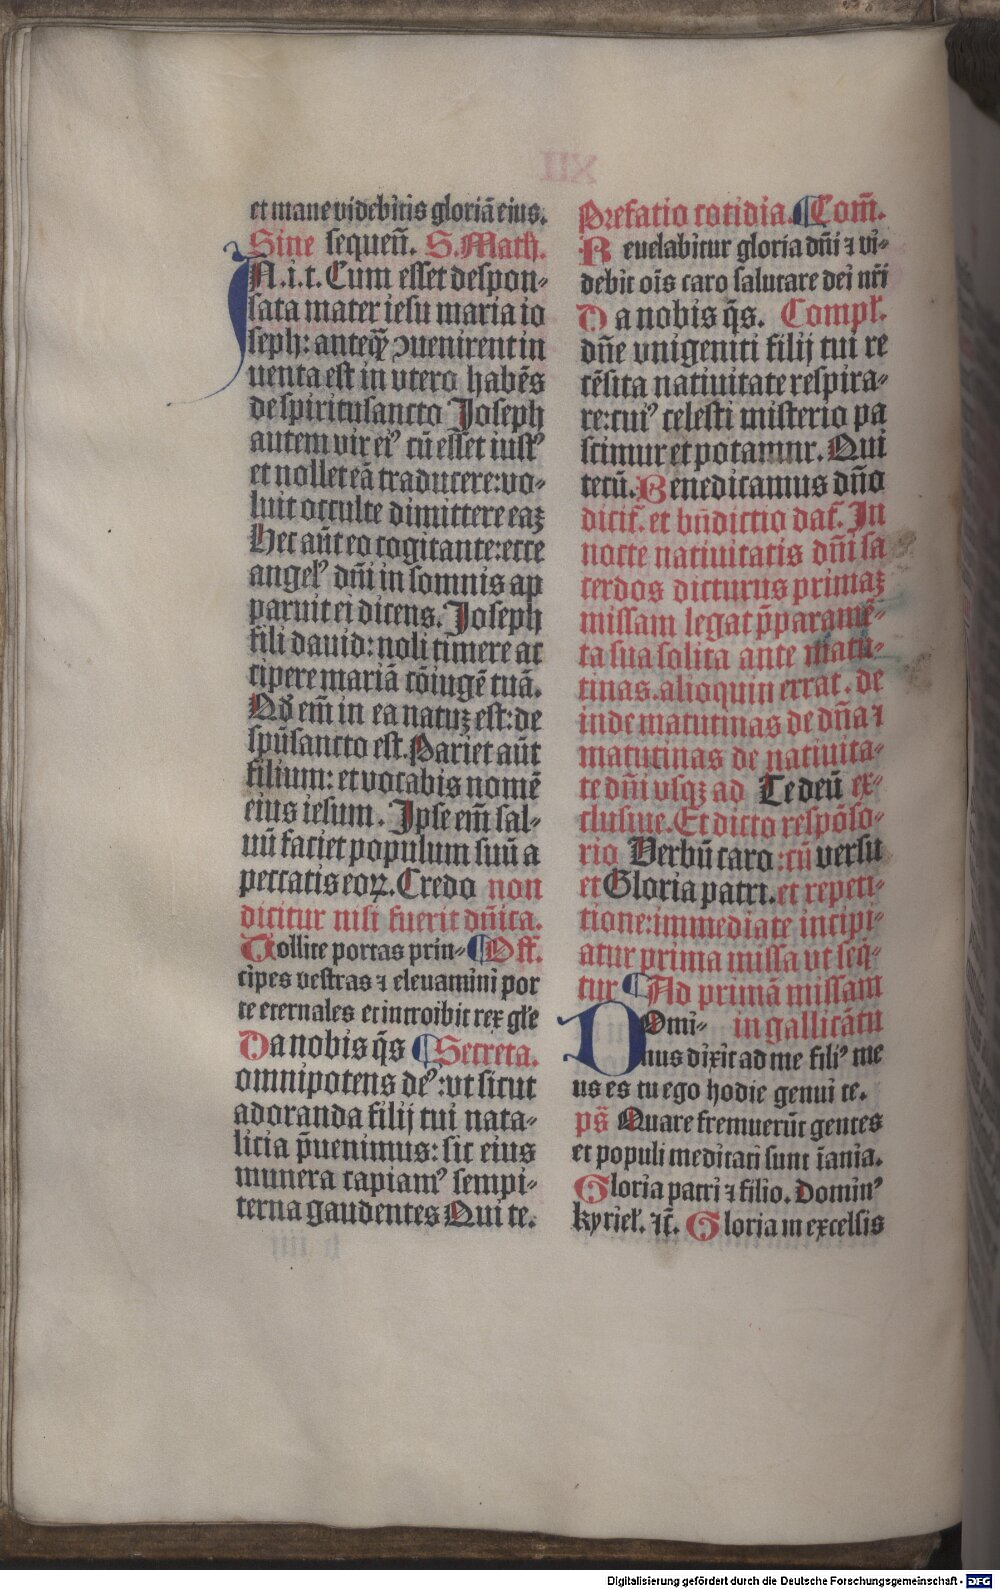 et mane videbitis gloriā eius.
Sine sequen̄. S. Math.
IN.i.t. Cum esset despon-
sata mater iesu maria io
seph: anteq̄ꝫ ↄuenirent in
uenta est in vtero habēs
de spiritusancto Joseph
autem vir ei⁹ cū esset iust⁹
et nollet eā traducere: vo-
luit occulte dimittere eaꝫ
Hec aūt eo cogitante: ecce
angel⁹ dn̄i in somnis ap
paruit ei dicens. Joseph
fili dauid: noli timere ac
cipere mariā cōiugē tuā.
Qđ em̄ in ea natuꝫ est: de
spūsancto est. Pariet aūt
filium: et vocabis nomē
eius iesum. Ipse em̄ sal-
uū faciet populum suū a
peccatis eoꝝ. Credo non
dicitur nisi fuerit dn̄ica.
Tollite portas prin- Off.
cipes vestras ⁊ eleuamini por
te eternales et introibit rex gl̄e
Da nobis q̄s Secreta.
omnipotens de⁹: vt sicut
adoranda filij tui nata-
licia p̄uenimus: sic eius
munera capiam⁹ sempi-
terna gaudentes Qui te.
Prefatio cotidia. Com̄.
Reuelabitur gloria dn̄i ⁊ vi-
debit ois caro salutare dei nr̄i
Da nobis q̄s. Compł.
dn̄e vnigeniti filij tui re
cēsita natiuitate respira-
re: cui⁹ celesti misterio pa
scimur et potamur. Qui
tecū. Benedicamus dn̄o
dicit̄. et bn̄dictio dat̄. In
nocte natiuitatis dn̄i sa
cerdos dicturus primaꝫ
missam legat p̄paramē-
ta sua solita ante matu-
tinas. alioquin errat. de
inde matutinas de dn̄a ⁊
matutinas de natiuita-
te dn̄i vsqꝫ ad Te deū ex-
clusiue. Et dicto respōso-
rio Verbū caro: cū versu
et Gloria patri. et repeti-
tione: immediate incipi-
atur prima missa vt seq̄-
tur Ad primā missam
Domi- in gallicātu
nus dixit ad me fili⁹ me
us es tu ego hodie genui te.
ps̄ Quare fremuerūt gentes
et populi meditati sunt īania.
Gloria patri ⁊ filio. Domin⁹
kyrieł. ⁊c̄. Gloria in excelsis
Digitalisierung gefördert durch die Deutsche Forschungsgemeinschaft - DFG